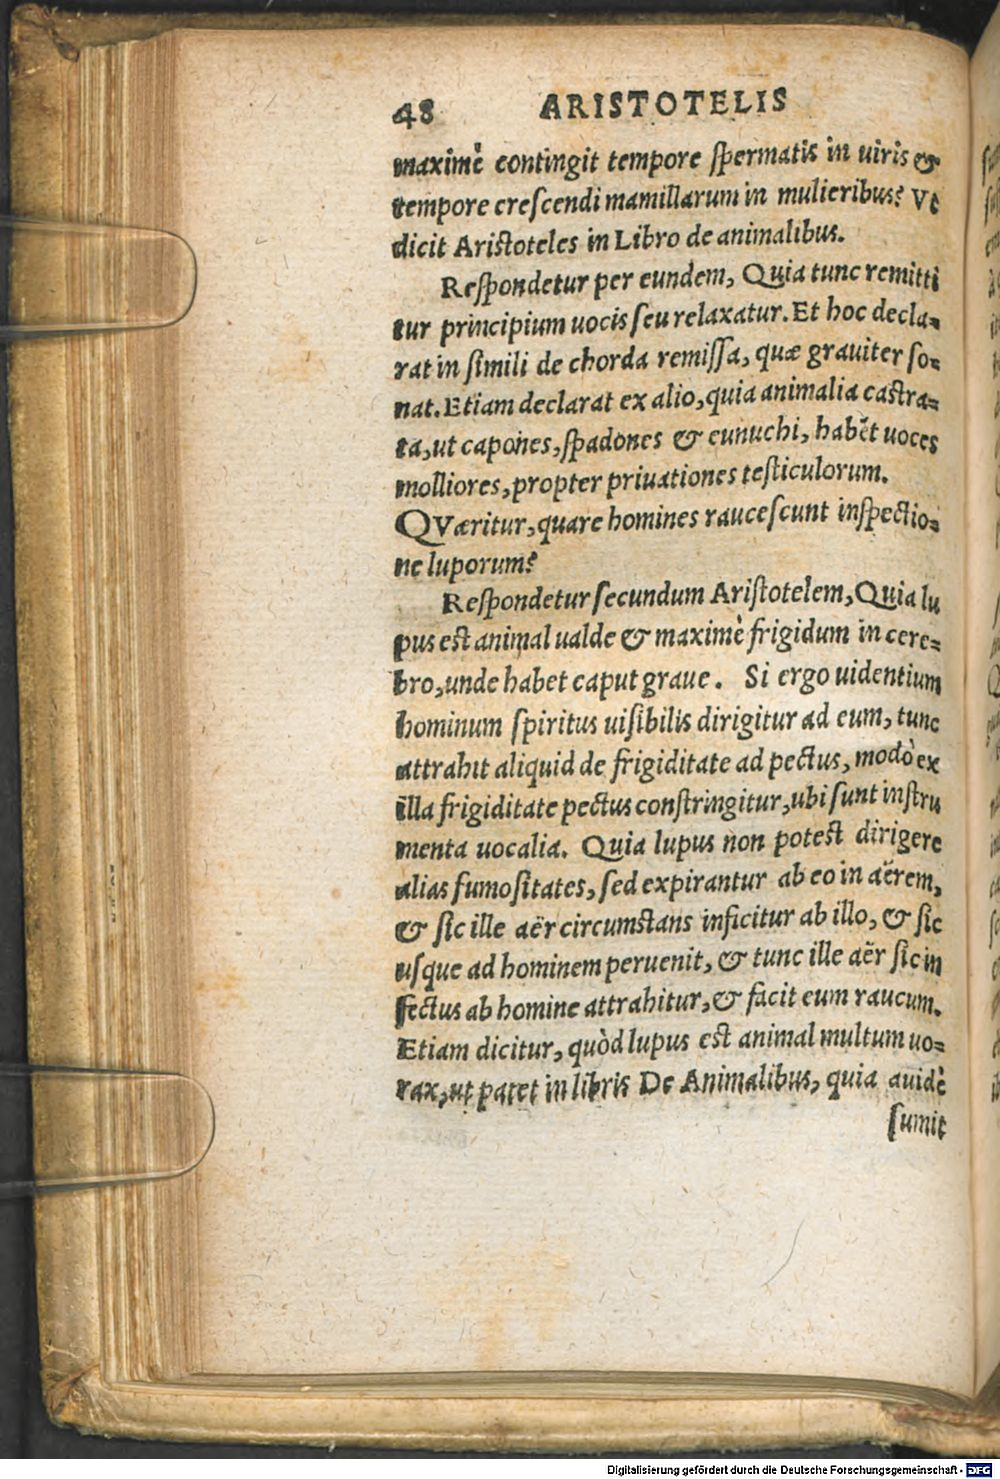 48 ARISTOTELIS
maximè contingit tempore spermatis in uiris &
tempore crescendi mamillarum in mulieribus? Vt
dicit Aristoteles in Libro de animalibus.
Respondetur per eundem, Quia tunc remitti
tur principium uocis seu relaxatur. Et hoc decla-
rat in simili de chorda remissa, quæ grauiter so-
nat. Etiam declarat ex alio, quia animalia castra-
ta, ut capones, spadones & eunuchi, habẽt uoces
molliores, propter priuationes testiculorum.
QVæritur, quare homines raucescunt inspectio-
ne luporum?
Respondetur secundum Aristotelem, Quia lu
pus est animal ualde & maximè frigidum in cere-
bro, unde habet caput graue. Si ergo uidentium
hominum spiritus uisibilis dirigitur ad eum, tunc
attrahit aliquid de frigiditate ad pectus, modò ex
illa frigiditate pectus constringitur, ubi sunt instru
menta uocalia. Quia lupus non potest dirigere
alias fumositates, sed expirantur ab eo in aërem,
& sic ille aër circumstans inficitur ab illo, & sic
usque ad hominem peruenit, & tunc ille aër sic in
fectus ab homine attrahitur, & facit eum raucum.
Etiam dicitur, quòd lupus est animal multum uo-
rax, ut patet in libris De Animalibus, quia auidè
sumit
Digitalisierung gefördert durch die Deutsche Forschungsgemeinschaft - DFG